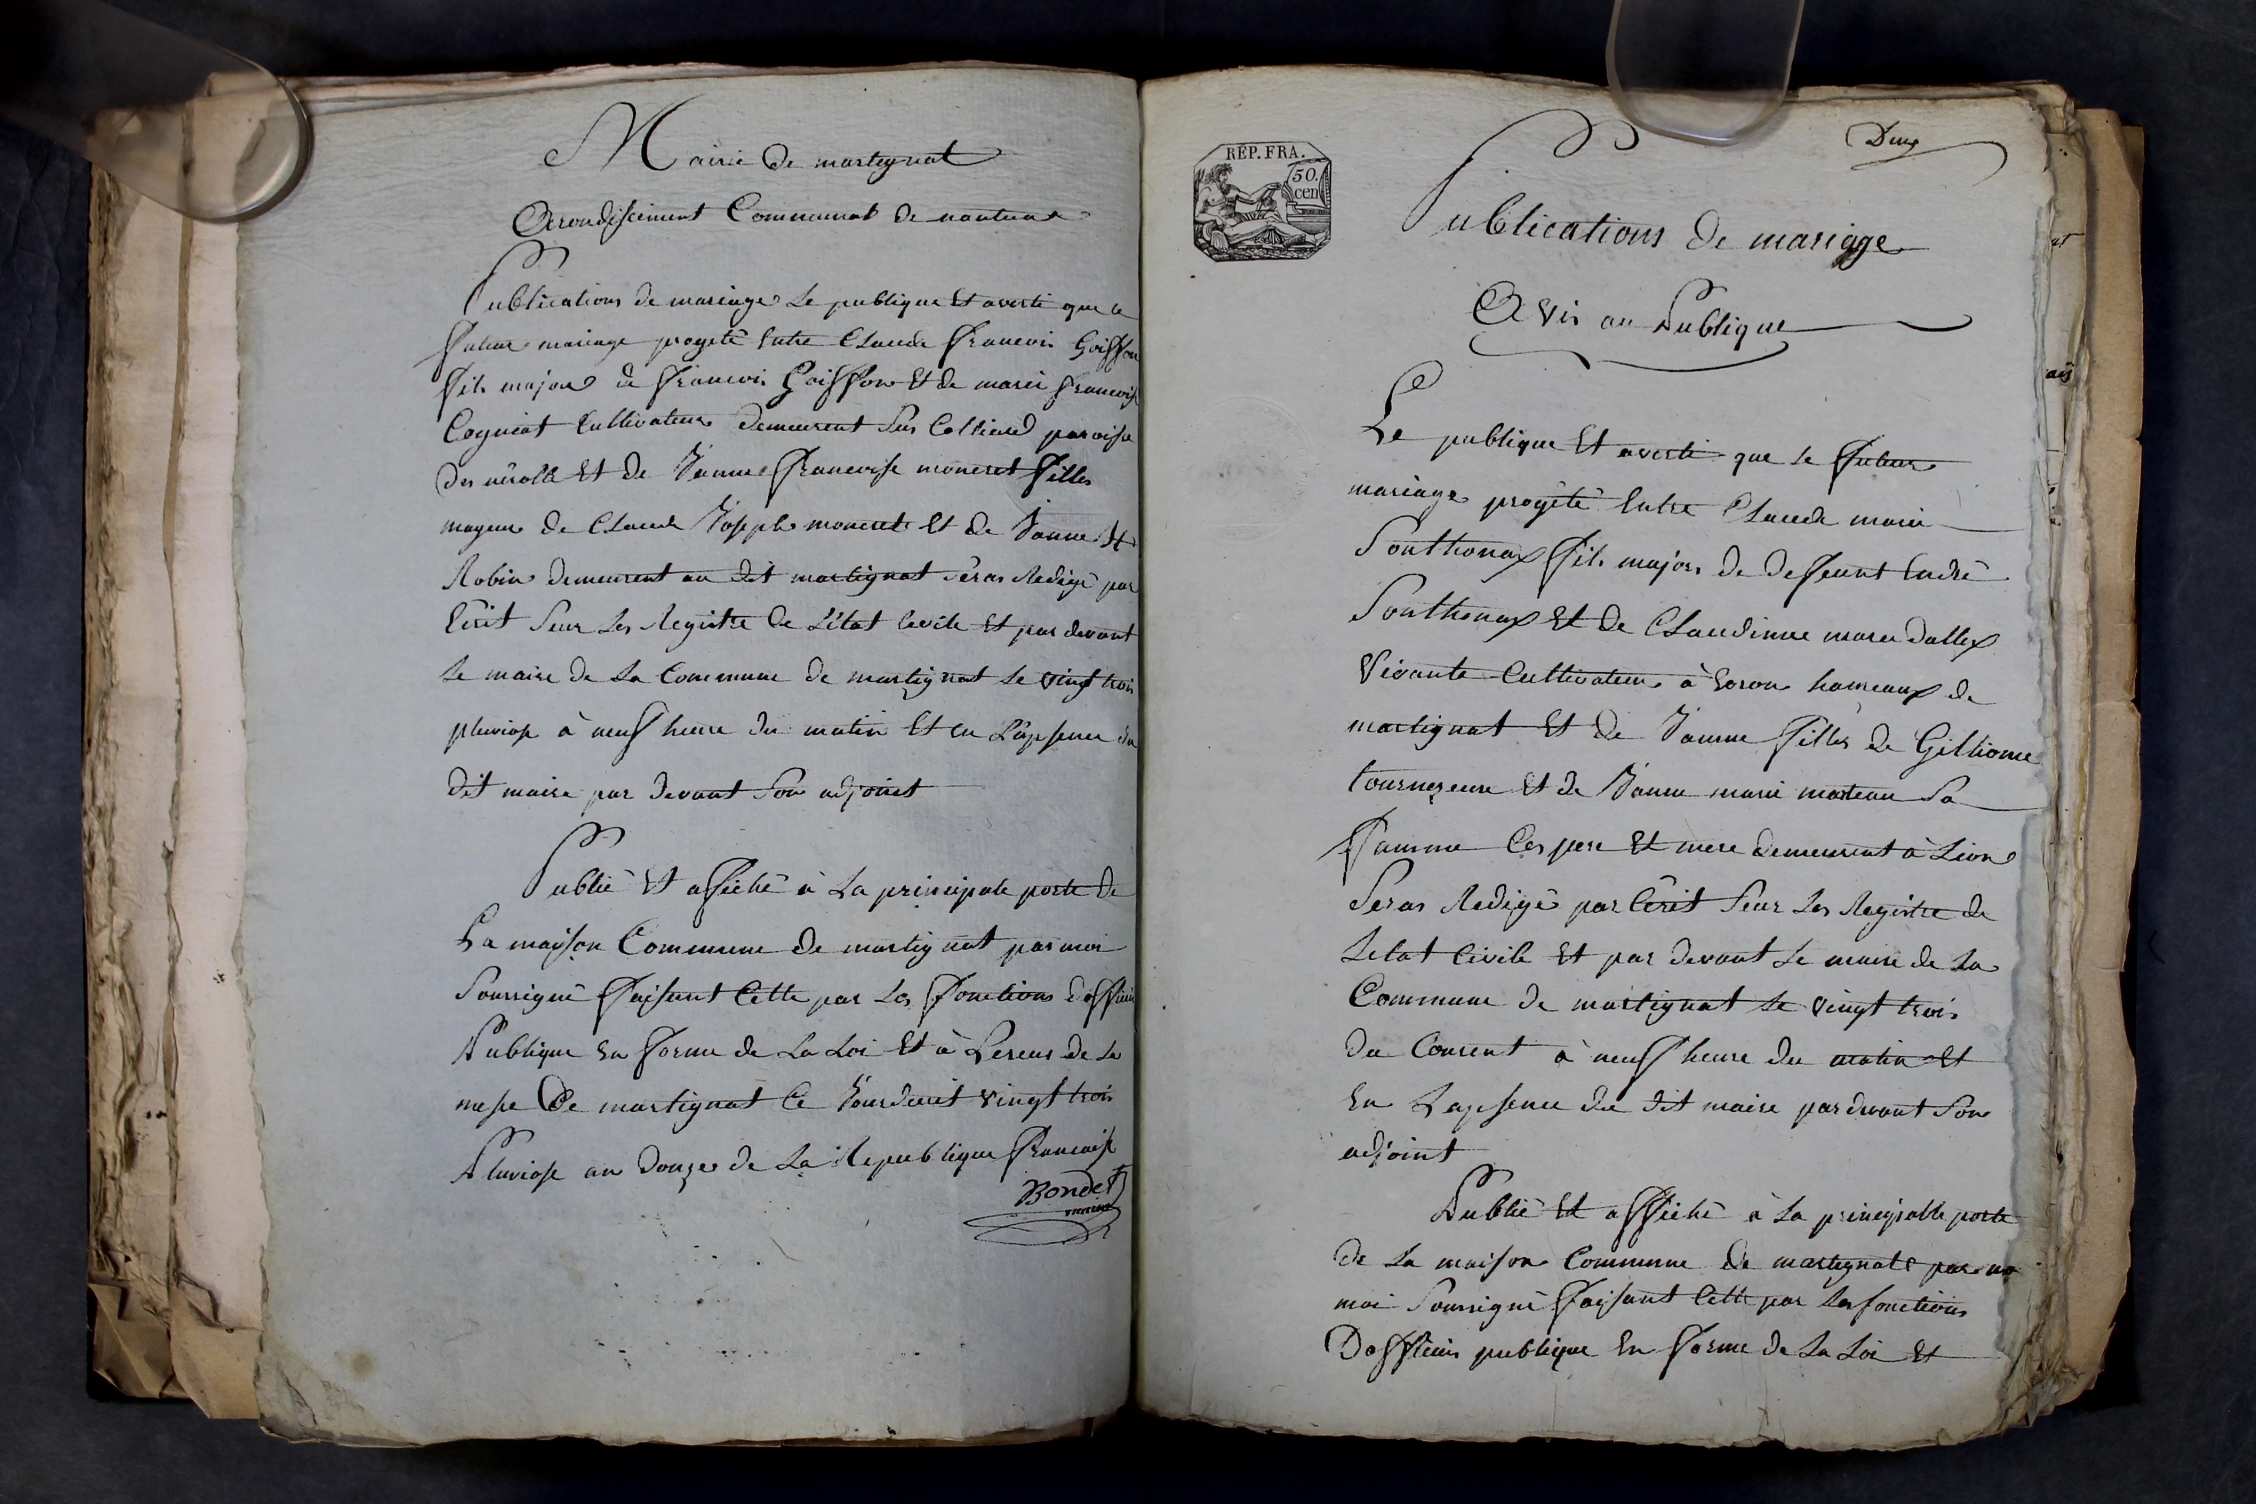 Mairie de martignat
Arondiscement Communal de nantua
Publications de mariage Le publique Et averti que le
Futur mariage progeté Entre Claude Francois Goiffon
Fils majeur de Francois Goiffon Et de marie Francoise
Cogniat Cultivateur demeurent Sur Colliard paroisse
des nérolle Et de Janne Francoise moneret Filles
mageur de Claude Joseph moneret Et de Janne
Robin demeurent au dit martignat Seras Redigé par
Ecrit Seur Les Registre de L'état Cevile Et par devant
Le maire de La Commune de martignat Le vingt trois
pluviose à neuf heure du matin Et en L'apsence du
dit maire par devant Son adjoint
Publié Et affiché à La principale porte de
La maison Commune de martignat par moi
Soussigné Faisant Cette par Les Fonctions d'officier
Publique En Forme de La Loi Et à de La
messe De martignat Ce Jourduit vingt trois
Pluviose an douze de La Republique Francaise
Bondet
maire
Deux
REP. FRA.
50.
cen
Publications de mariage
Avis au Publique
Le publique Et averti que Le Futur
mariage progété Entre Claude marie
Sonthonax Fils majeur de deffeunt Endré
Sonthonax Et de Claudinne marie dallex
Vivante Cultivateur à Evron hameaux de
martignat Et de Janne Filles de Gilliome
tourneyeure Et de Janne marie mateau Sa
Famme Ces pere Et mere demeurent à Lion
Seras Redigé par Ecrit Seur Les Registre de
Letat Civile Et par devant Le maire de La
Commune de martignat Le vingt trois
du Courent à neuf heure du matin Et
En Lapsence du dit maire par devant Son
adjoint
Publié Et affiché à La principalle porte
de La maison Commune de martignat par
moi Soussigné Faisant Cette par Les fonctions
Dofficier publique En Forme de La Loi Et